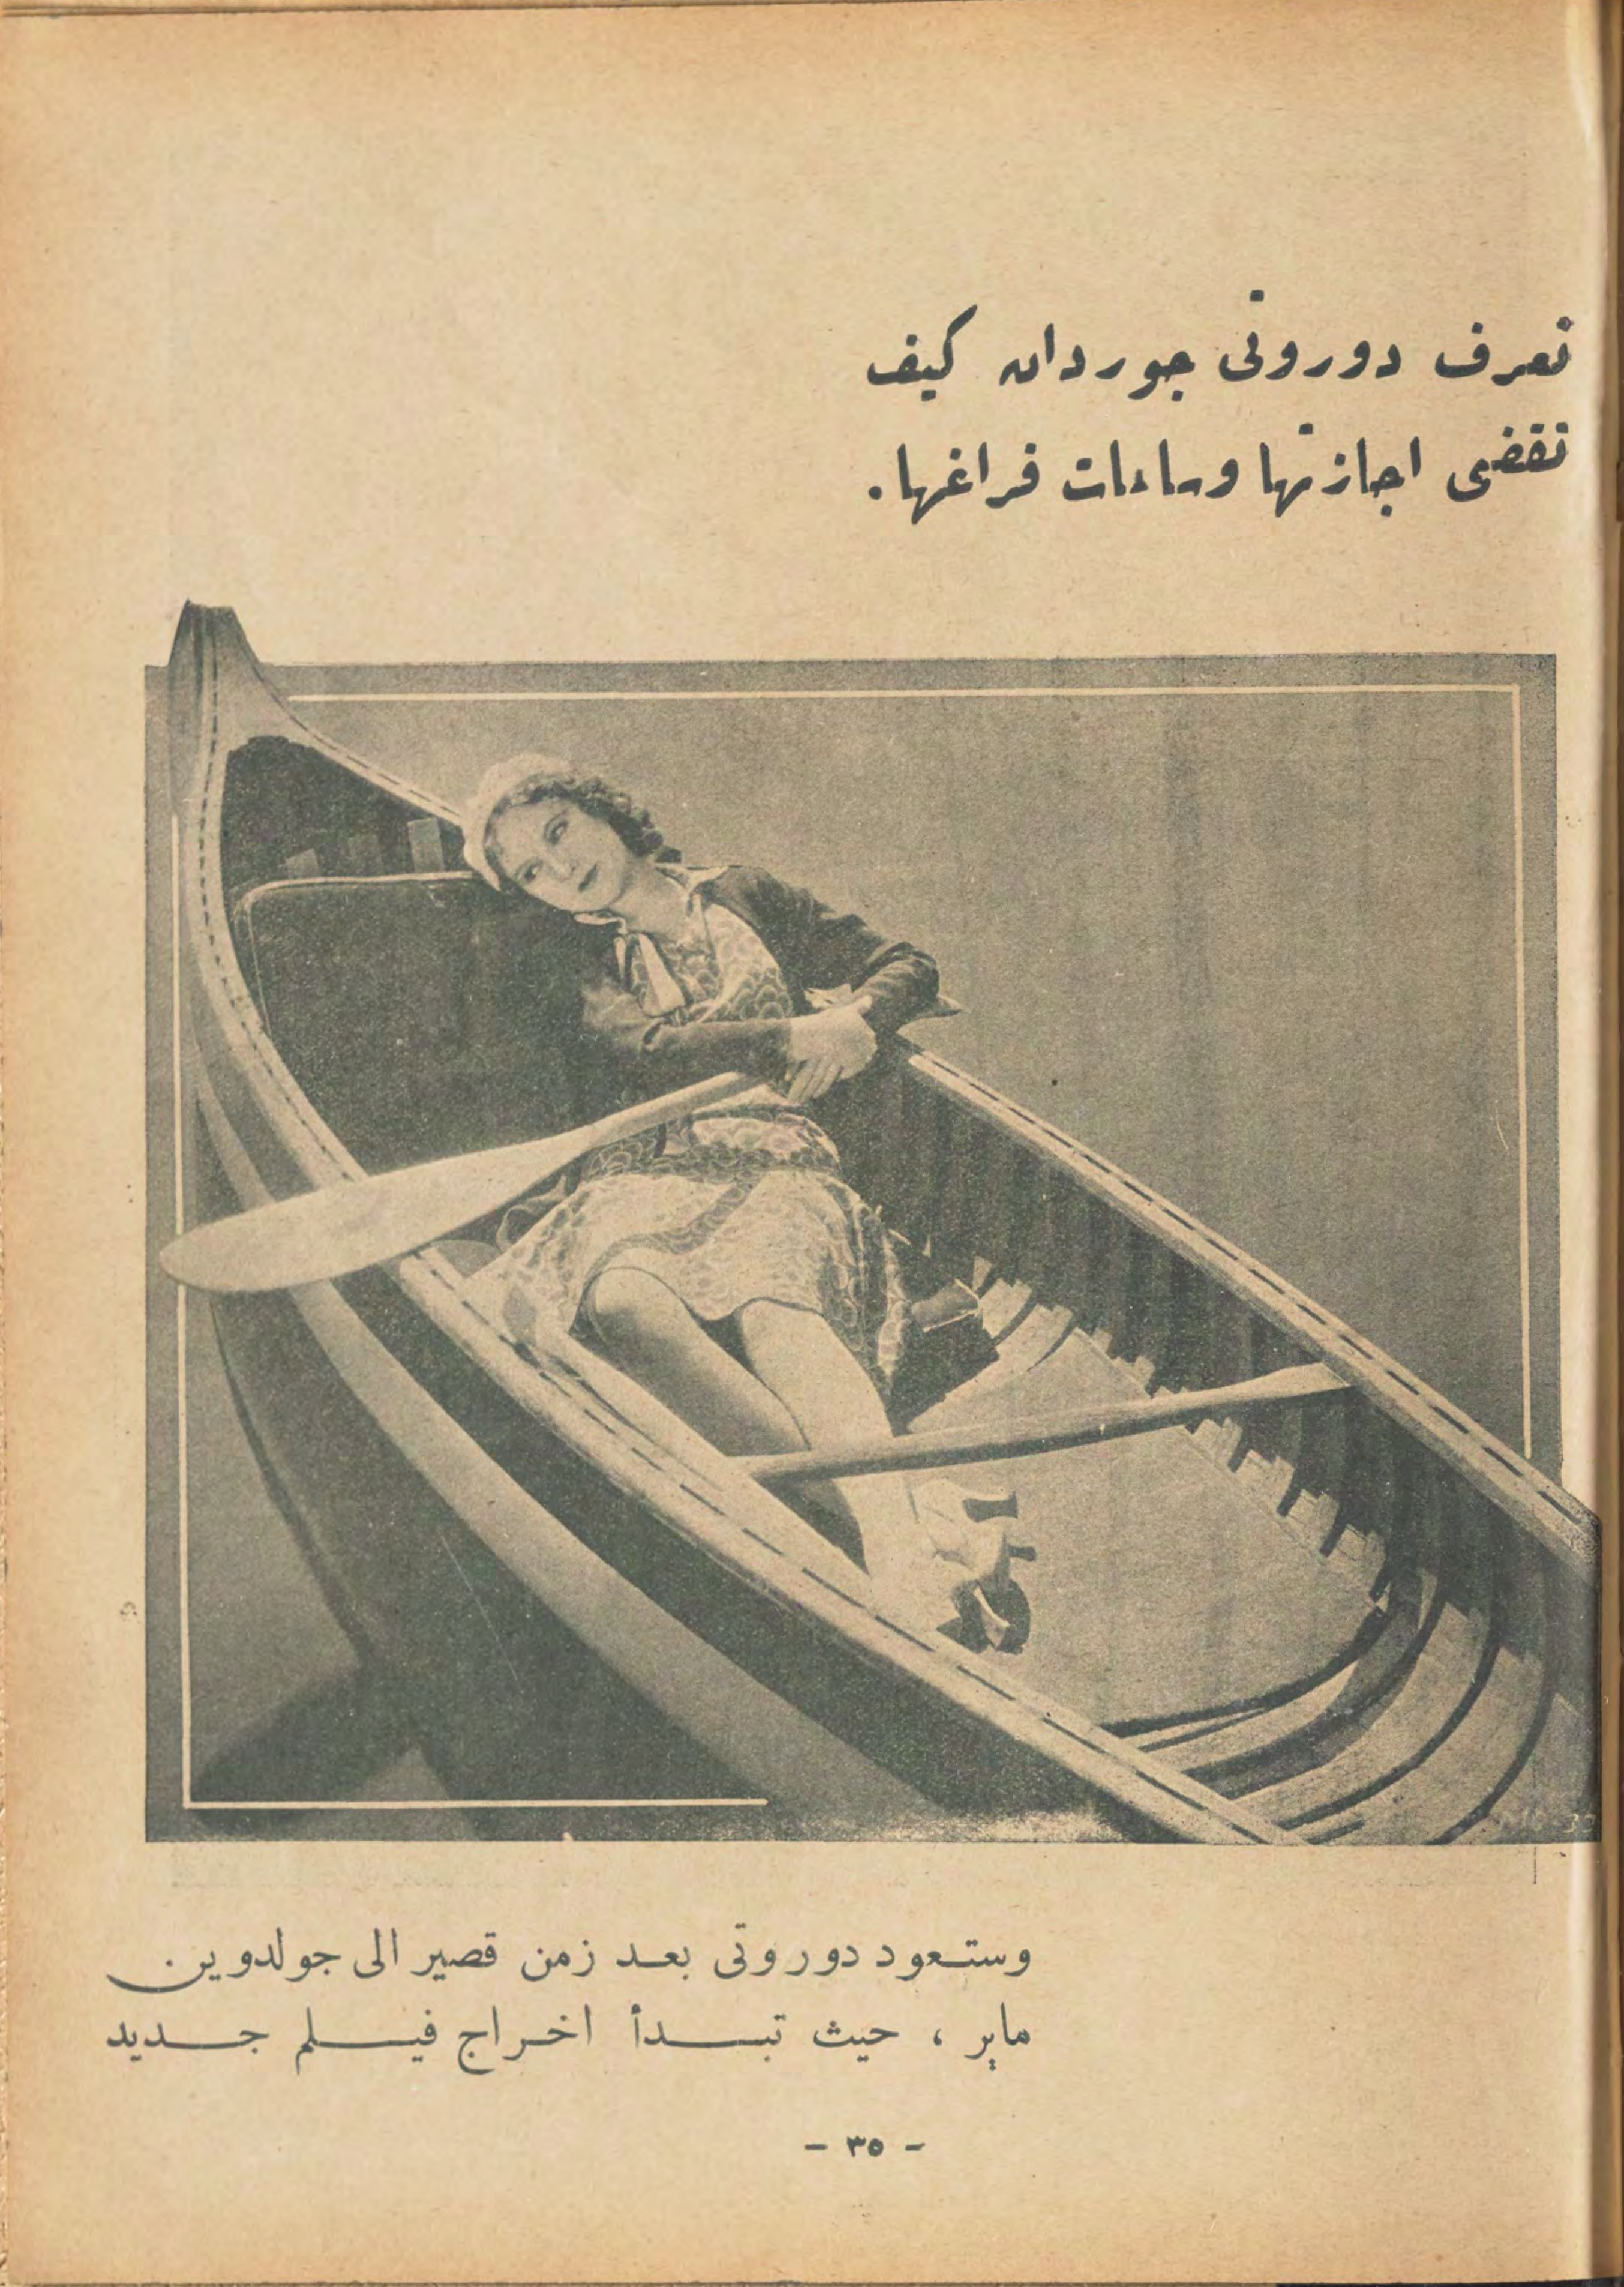 تعرف دوروتى جوردان كيف
تقضى اجازتها وساعات فراغها.
وستعود دوروتى بعد زمن قصير الى جولدوين
ماير ، حيث تبدأ اخراج فيلم جديد
- ٣٥ -